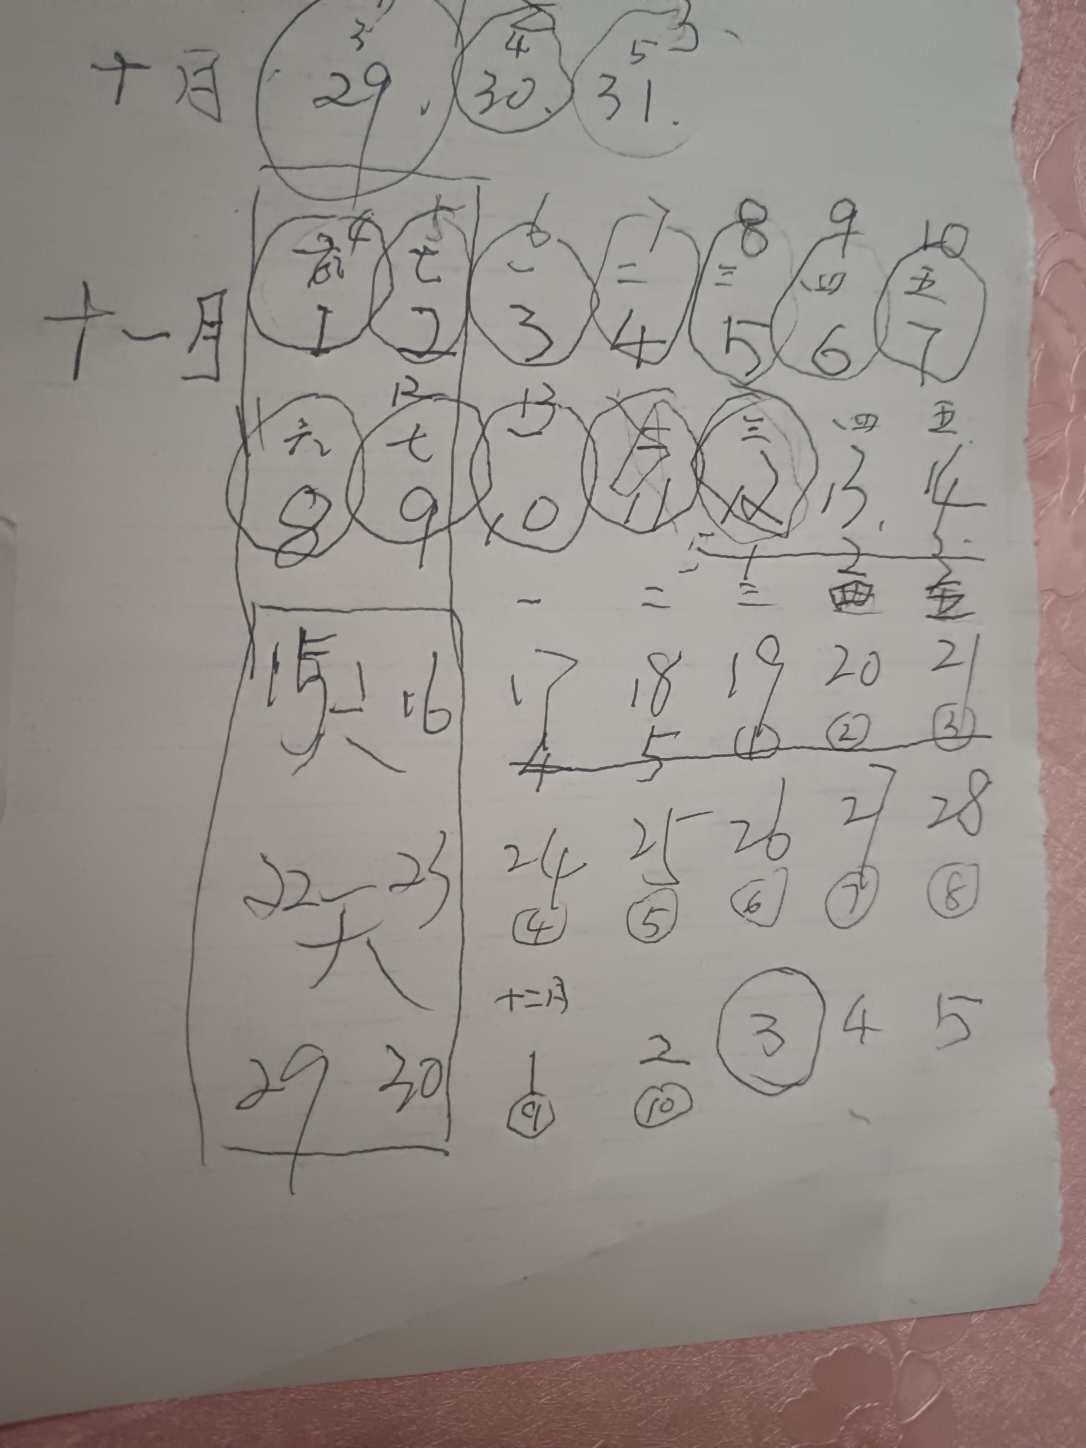 3 4 5 3、
十月 29. 30. 31.
4 5 6 7 8 9 10
六 七 一 二 三 四 五
十一月 1 2 3 4 5 6 7
11 12 13
六 七 三 四 五
8 9 10 11 12 13. 14
1 2 3
一 二 三 四 五
15 16 17 18 19 20 21
4 5 ① ② ③
22 23 24 25 26 27 28
④ ⑤ ⑥ ⑦ ⑧
十二月
29 30 1 2 3 4 5
⑨ ⑩